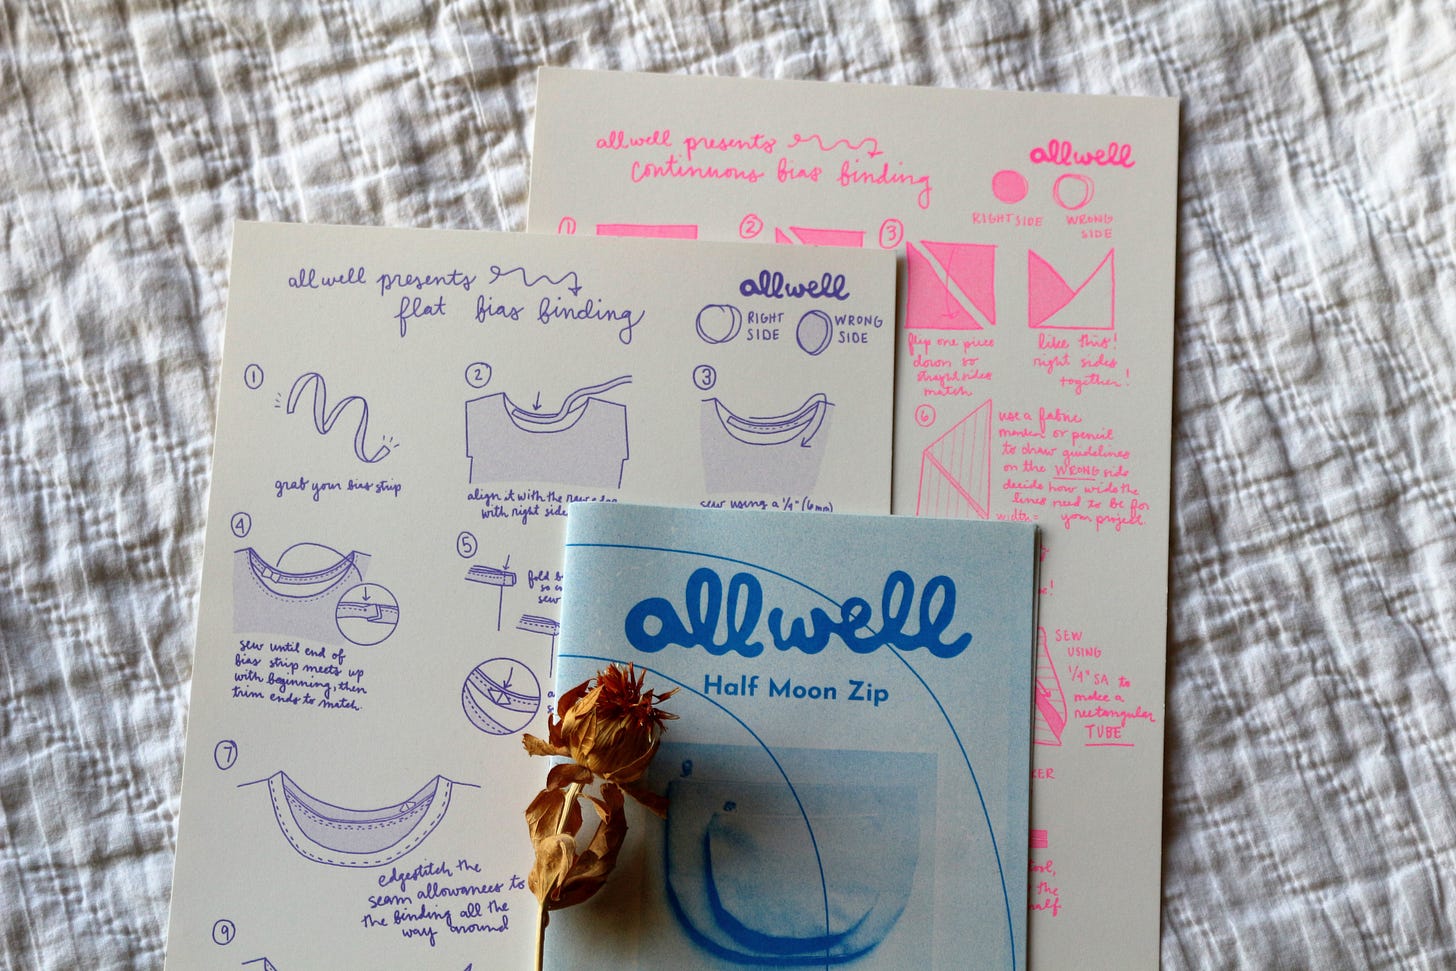 allwell presents
continuous bias binding
allwell
RIGHT SIDE
WRONG
SIDE
1
2
3
flip one piece
down so
straight sides
match
like this!
right sides
together!
6
use a fabric
marker or pencil
to draw guidelines
on the WRONG side
decide how wide the
lines need to be for
width = your project.
SEW
USING
1/4" SA to
make a
rectangular
TUBE
allwell presents
flat bias binding
allwell
RIGHT
SIDE
WRONG
SIDE
1
grab your bias strip
2
align it with the raw
with right side
3
sew using a 1/4" (6mm)
4
sew until end of
bias strip meets up
with beginning, then
trim ends to match.
5
fold
so
sew
7
edgestitch the
seam allowances to
the binding all the
way around
9
allwell
Half Moon Zip